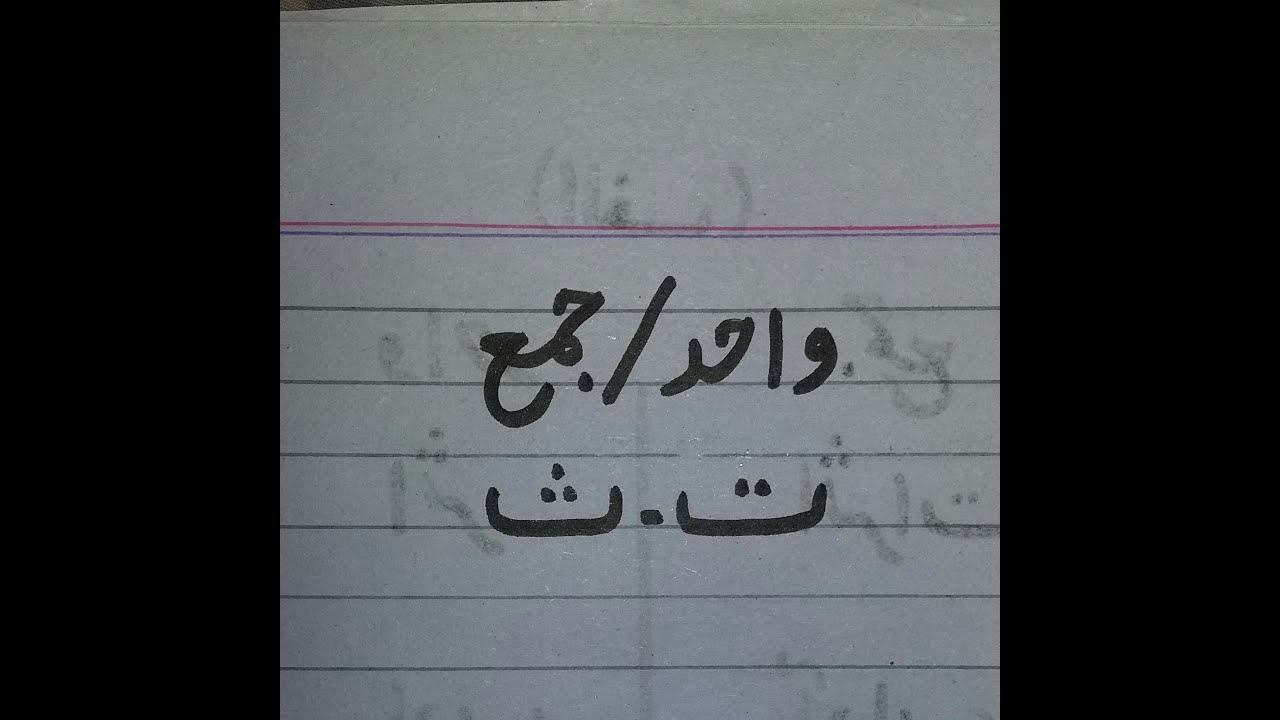 واحد/جمع
ت.ث